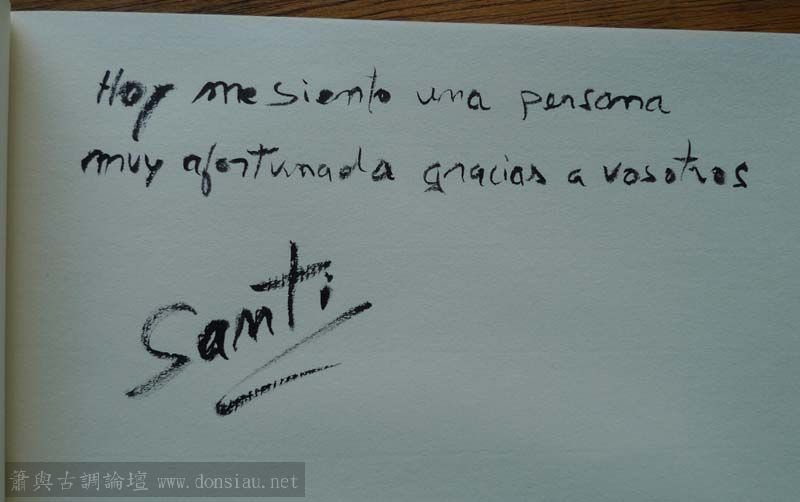 Hoy me siento una persona
muy afortunada gracias a vosotros
Santi
簫與古調論壇 www.donsiau.net